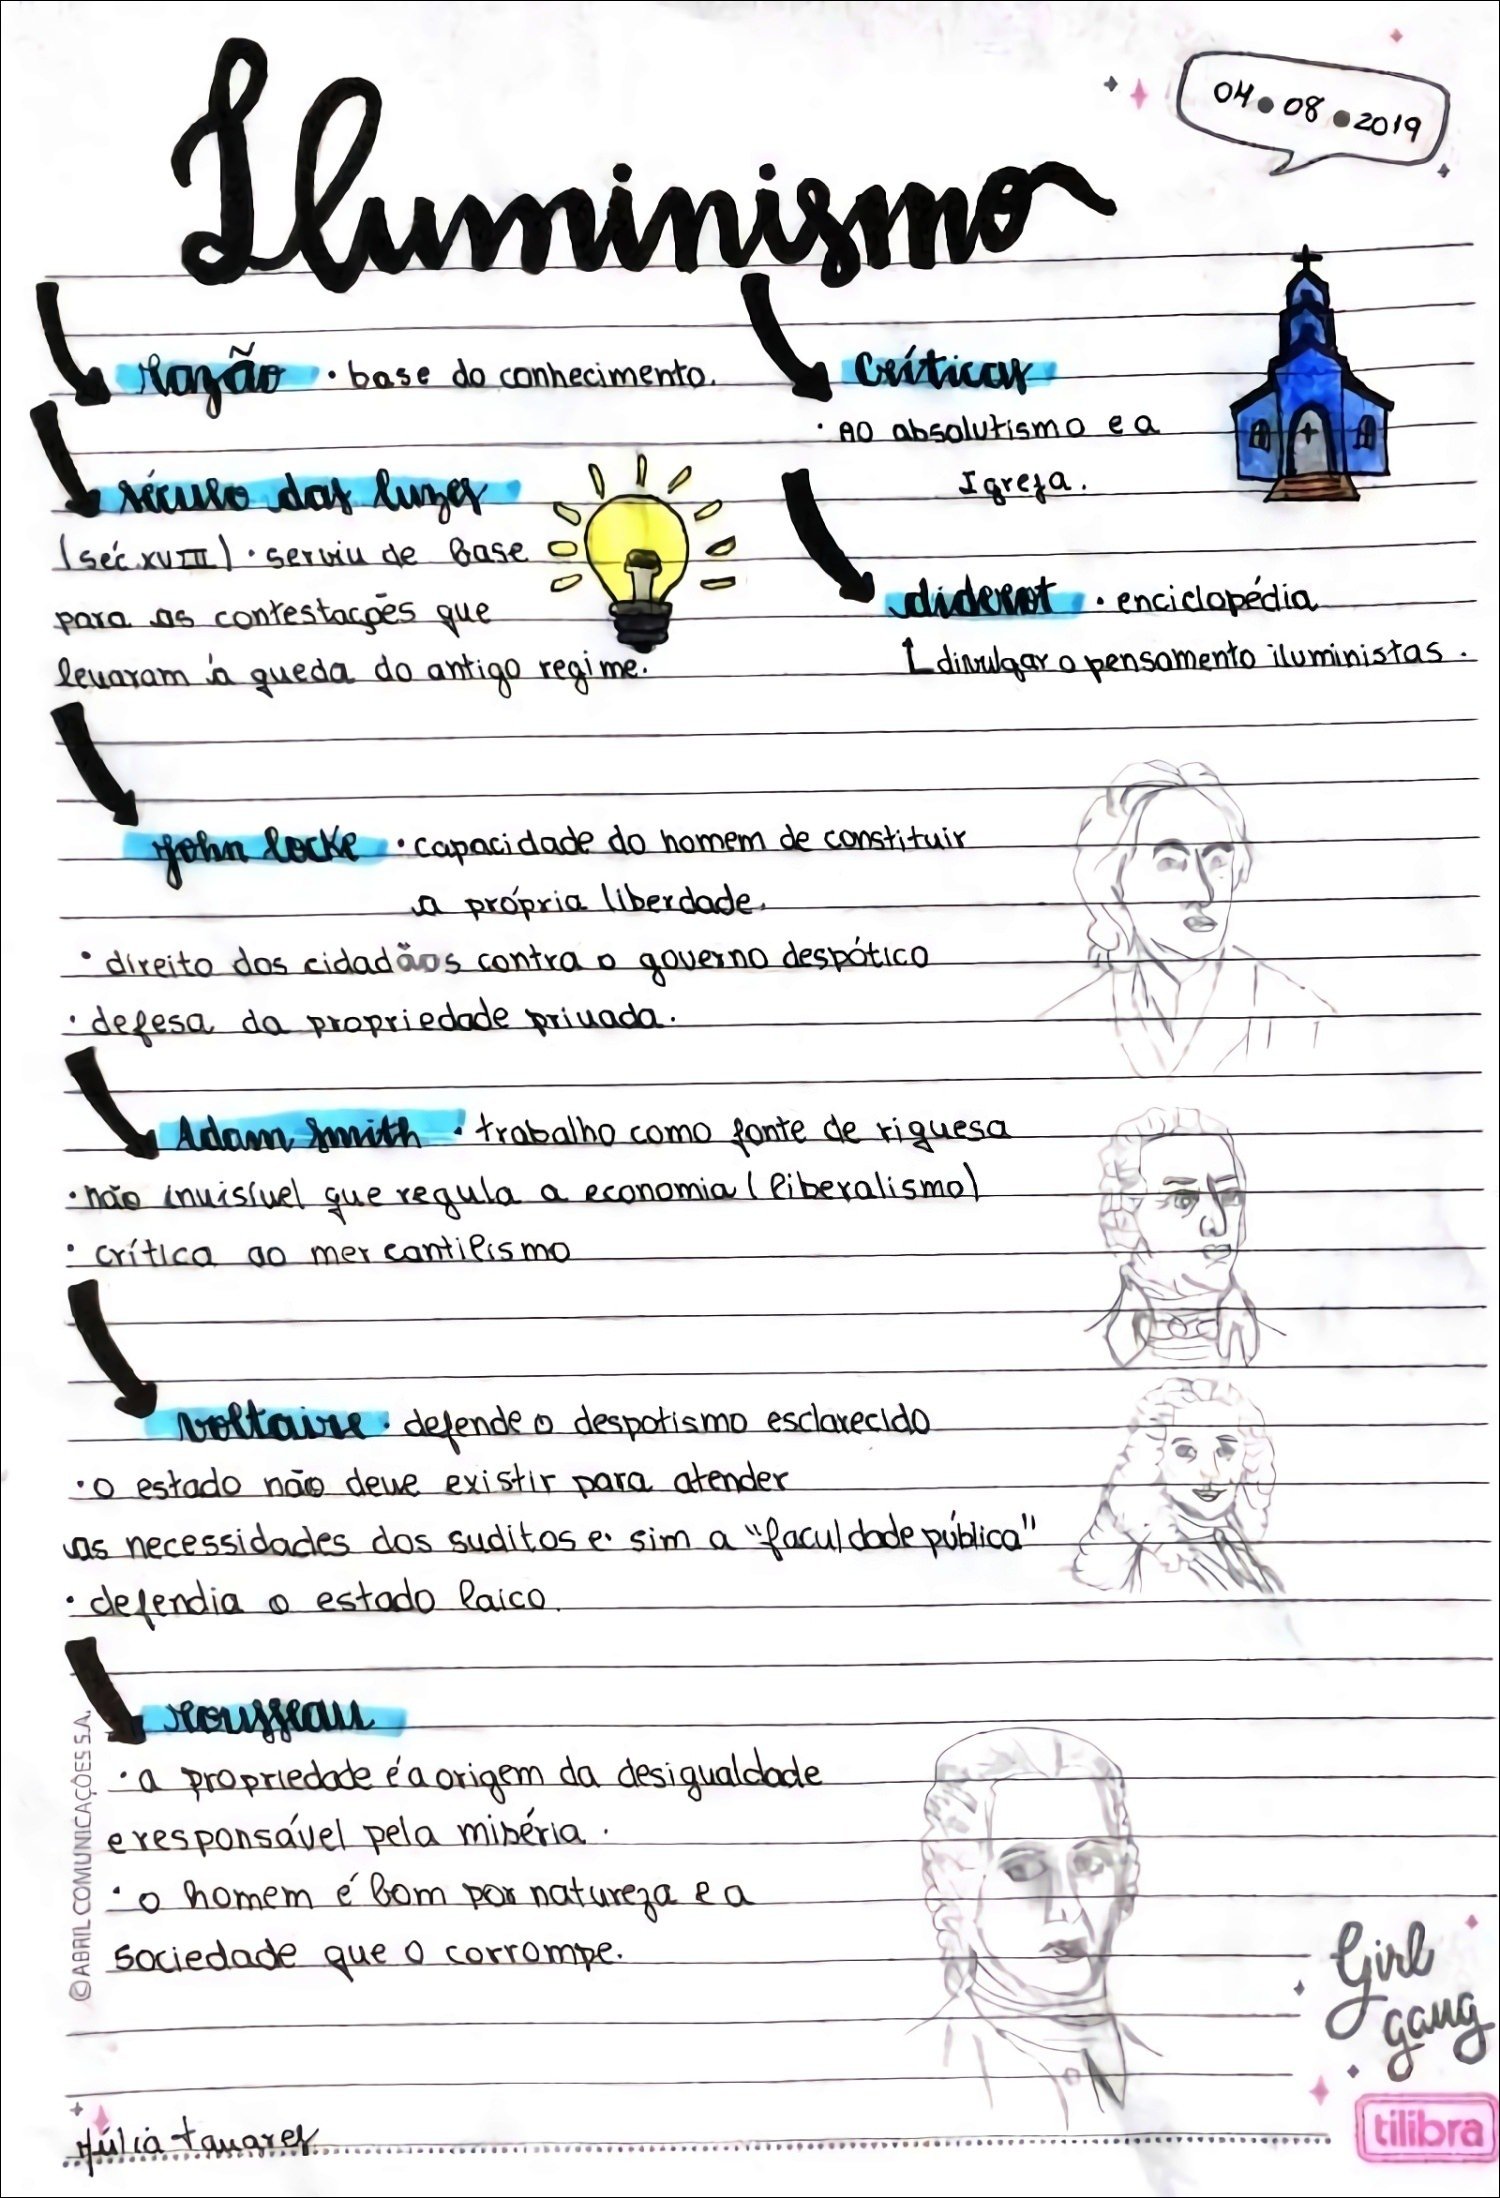 04 • 08 • 2019
Iluminismo
razão • base do conhecimento.
século das luzes
(séc. XVIII) • serviu de base
para as contestações que
levaram à queda do antigo regime.
Críticas
• AO absolutismo e a
Igreja.
diderot • enciclopédia
divulgar o pensamento iluministas.
john locke • capacidade do homem de constituir
a própria liberdade.
• direito dos cidadãos contra o governo despótico
• defesa da propriedade privada.
Adam Smith • trabalho como fonte de riquesa
• não invisível que regula a economia (liberalismo)
• crítica ao mercantilismo
voltaire • defende o despotismo esclarecido
• o estado não deve existir para atender
as necessidades dos suditos e sim a "faculdade pública"
• defendia o estado laico.
rousseau
• a propriedade é a origem da desigualdade
e responsável pela miséria.
• o homem é bom por natureza e a
sociedade que o corrompe.
© ABRIL COMUNICAÇÕES S.A.
Girl
gang
tilibra
Júlia tavares